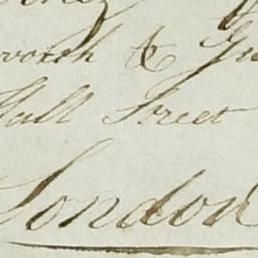 worth & Gu
Hall Street
London